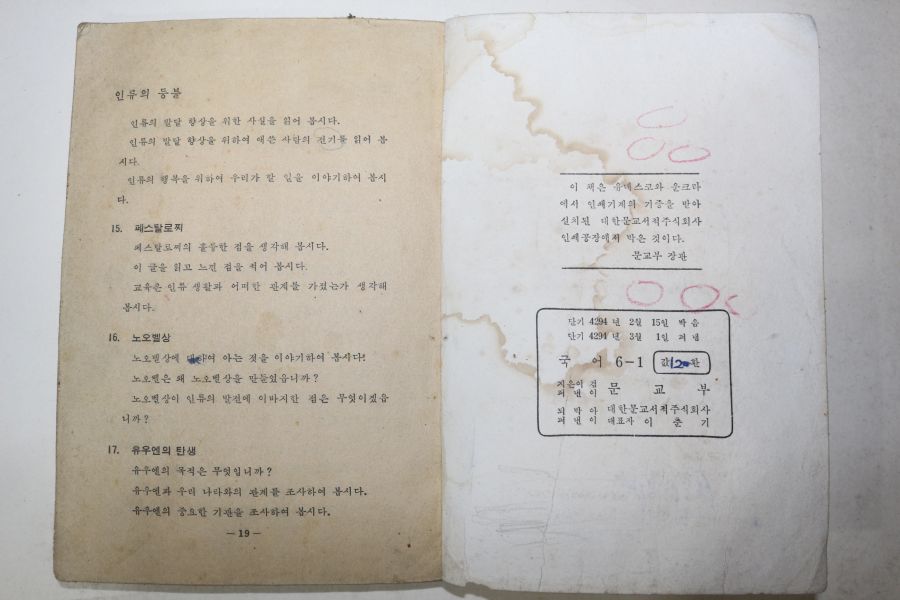 인류의 등불
인류의 발달 향상을 위한 사실을 읽어 봅시다.
인류의 발달 향상을 위하여 애쓴 사람의 전기를 읽어 봅
시다.
인류의 행복을 위하여 우리가 할 일을 이야기하여 봅시
다.
15. 페스탈로찌
페스탈로찌의 훌등한 점을 생각해 봅시다.
이 글을 읽고 느낀 점을 적어 봅시다.
교육은 인류 생활과 어떠한 관계를 가졌는가 생각해
봅시다.
16. 노오벨상
노오벨상에 대하여 아는 것을 이야기하여 봅시다!
노오벨은 왜 노오벨상을 만들었읍니까?
노오벨상이 인류의 발전에 이바지한 점은 무엇이겠읍
니까?
17. 유우엔의 탄생
유우엔의 목적은 무엇입니까?
유우엔과 우리 나라와의 관계를 조사하여 봅시다.
유우엔의 중요한 기관을 조사하여 봅시다.
— 19 —
이 책은 유네스코와 운크라
에서 인쇄기계의 기증을 받아
설치된 대한문교서적주식회사
인쇄공장에서 박은 것이다.
문교부 장관
단기 4294 년 2월 15일 박음
단기 4294 년 3월 1일 펴냄
국 어 6-1 값 120 환
지은이 겸
펴낸이 문 교 부
되박아
펴낸이 대한문교서적주식회사
대표자 이 춘 기